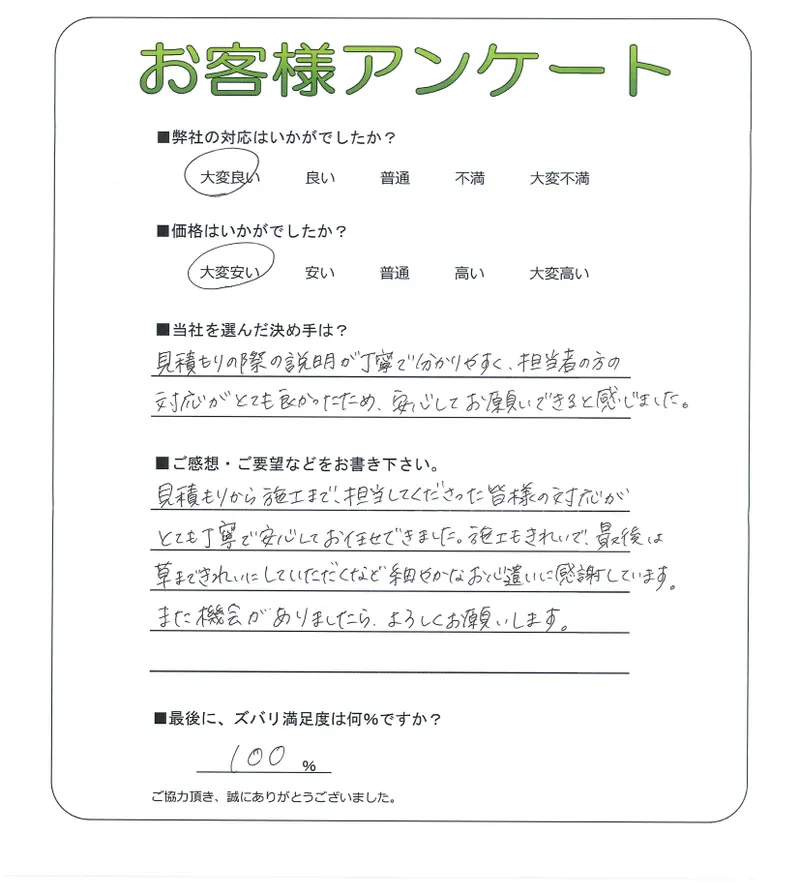 お客様アンケート
■弊社の対応はいかがでしたか？
大変良い 良い 普通 不満 大変不満
■価格はいかがでしたか？
大変安い 安い 普通 高い 大変高い
■当社を選んだ決め手は？
見積もりの際の説明が丁寧で分かりやすく、担当者の方の
対応がとても良かったため、安心してお願いできると感じました。
■ご感想・ご要望などをお書き下さい。
見積もりから施工まで、担当してくださった皆様の対応が
とても丁寧で安心してお任せできました。施工もきれいで、最後は
草まできれいにしていただくなど細やかなお心遣いに感謝しています。
また機会がありましたら、よろしくお願いします。
■最後に、ズバリ満足度は何%ですか？
100 %
ご協力頂き、誠にありがとうございました。